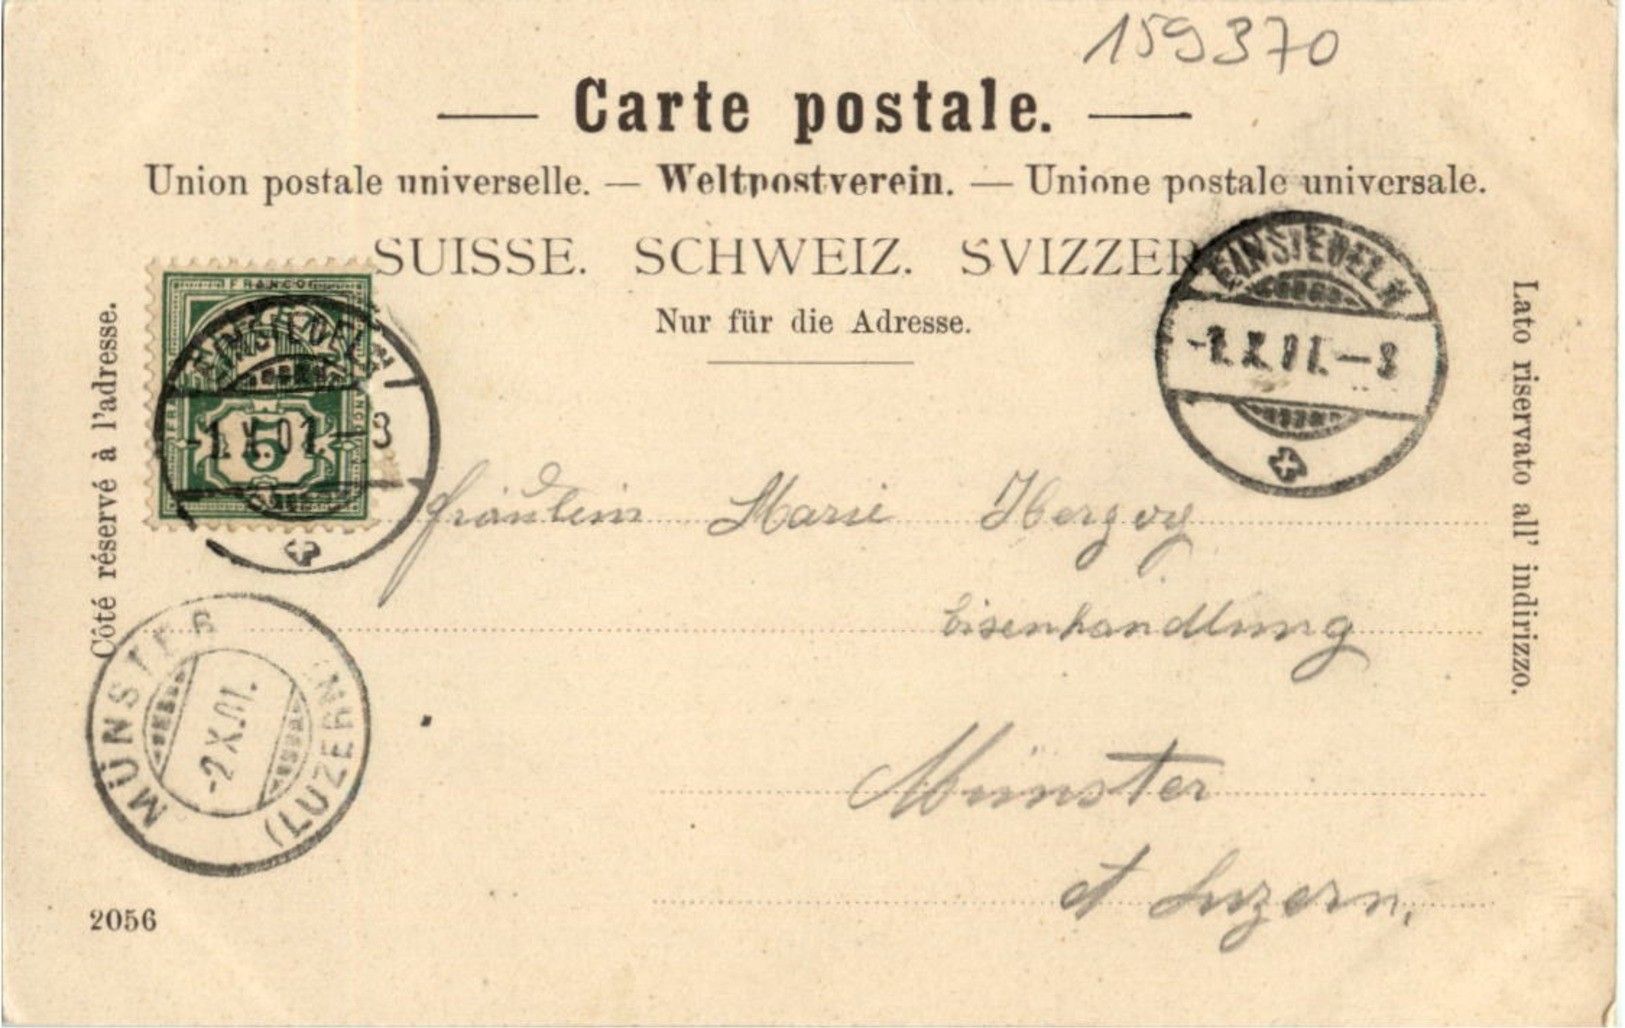 159370
Carte postale.
Union postale universelle. — Weltpostverein. — Unione postale universale.
SUISSE. SCHWEIZ. SVIZZER
Nur für die Adresse.
Côté réservé à l'adresse.
Lato riservato all' indirizzo.
FRANCO
EINSIEDELN
-1.X.01.-3
5
EINSIEDELN
-1.X.01.-3
Fräulein Marie Herzog
Eisenhandlung
Münster
Ct Luzern.
MÜNSTER
-2.X.01.
(LUZERN)
2056